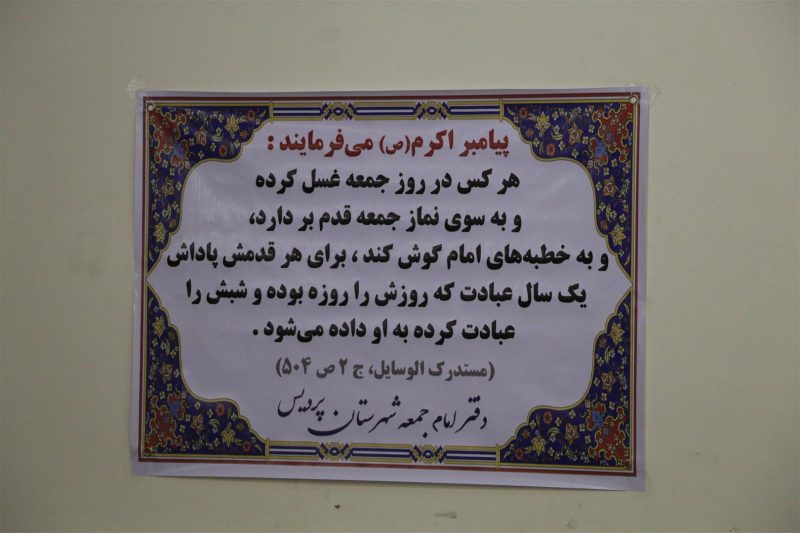 پیامبر اکرم(ص) می‌فرمایند :
هر کس در روز جمعه غسل کرده
و به سوی نماز جمعه قدم بر دارد،
و به خطبه‌های امام گوش کند ، برای هر قدمش پاداش
یک سال عبادت که روزش را روزه بوده و شبش را
عبادت کرده به او داده می‌شود .
(مستدرک الوسایل، ج ۲ ص ۵۰۴)
دفتر امام جمعه شهرستان پردیس